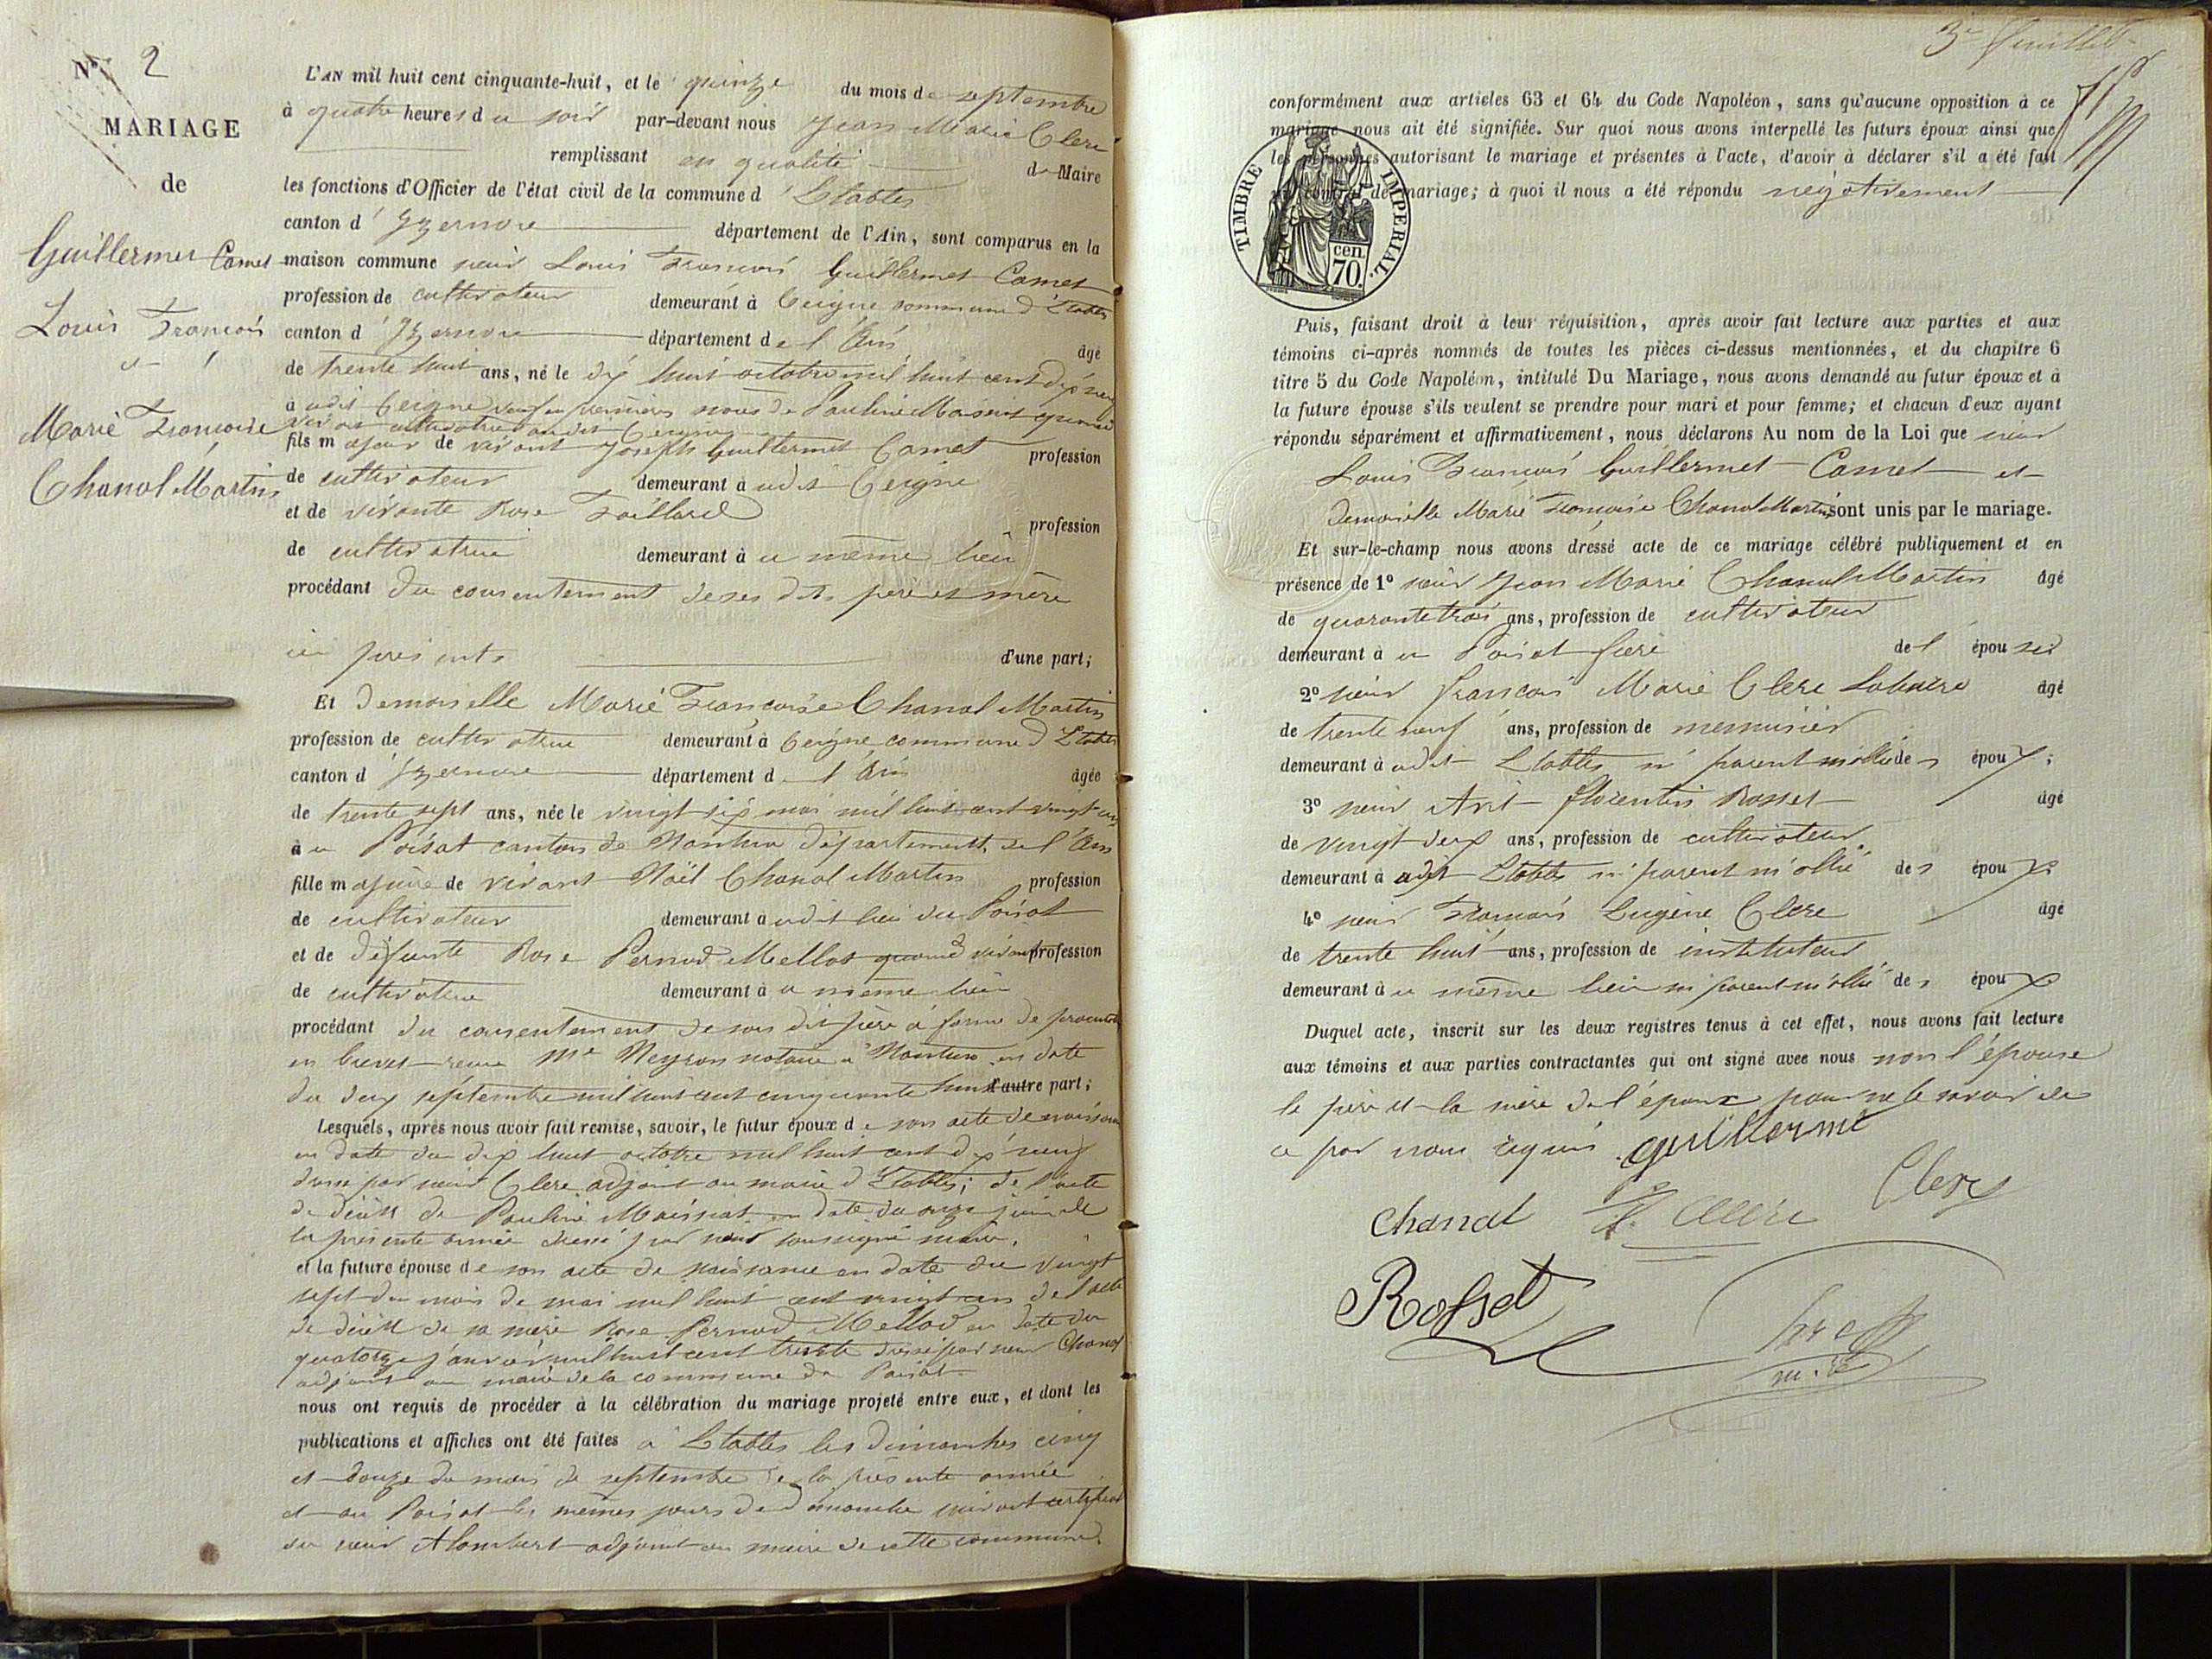 N° 2
MARIAGE
de
Guillermet Camet
Louis François
et
Marie Françoise
Chanal Martin
L'AN mil huit cent cinquante-huit, et le quinze du mois de septembre
à quatre heures du soir par-devant nous Jean Marie Clerc
remplissant en qualité de Maire
les fonctions d'Officier de l'état civil de la commune d'Etables
canton d'Izernore département de l'Ain, sont comparus en la
maison commune sieur Louis François Guillermet Camet
profession de cultivateur demeurant à Ceigne commune d'Etables
canton d'Izernore département de l'Ain âgé
de trente huit ans, né le dix huit octobre mil huit cent dix neuf
à udit Ceigne veuf en premières noces de Pauline Moissiat quand
vivait cultivatrice audit Ceigne
fils majeur de vivant Joseph Guillermet Camet profession
de cultivateur demeurant à udit Ceigne
et de vivante Rose Taillard profession
de cultivatrice demeurant à u même lieu
procédant du consentement de ses dits père et mère
ici présents d'une part;
Et demoiselle Marie Françoise Chanal Martin
profession de cultivatrice demeurant à Ceigne commune d'Etables
canton d'Izernore département de l'Ain âgée
de trente sept ans, née le vingt six mai mil huit cent vingt un
à u Poisat canton de Nantua département de l'Ain
fille majeure de vivant Noël Chanal Martin profession
de cultivateur demeurant à udit lieu du Poisat
et de défunte Rose Pernod Mellot quand vivait profession
de cultivatrice demeurant à u même lieu
procédant du consentement de son dit père à forme de procuration
en brevet reçue Me Neyron notaire à Nantua en date
du deux septembre mil huit cent cinquante huit d'autre part;
Lesquels, après nous avoir fait remise, savoir, le futur époux de son acte de naissance
en date du dix huit octobre mil huit cent dix neuf
dressé par sieur Clerc adjoint au maire d'Etables; de l'acte
de décès de Pauline Moissiat en date du onze juin de
la présente année dressé par nous soussigné maire.
et la future épouse de son acte de naissance en date du vingt
sept du mois de mai mil huit cent vingt un de l'acte
de décès de sa mère Rose Pernod Mellod en date du
quatorze janvier mil huit cent trente dressé par sieur Chanal
adjoint au maire de la commune du Poisat.
nous ont requis de procéder à la célébration du mariage projeté entre eux, et dont les
publications et affiches ont été faites à Etables les dimanches cinq
et douze du mois de septembre de la présente année
et au Poisat les mêmes jours de dimanche suivant certificat
du sieur Alombert adjoint au maire de cette commune.
3e feuillet
conformément aux articles 63 et 64 du Code Napoléon, sans qu'aucune opposition à ce
mariage nous ait été signifiée. Sur quoi nous avons interpellé les futurs époux ainsi que
les personnes autorisant le mariage et présentes à l'acte, d'avoir à déclarer s'il a été fait
un contrat de mariage; à quoi il nous a été répondu négativement
TIMBRE IMPERIAL.
cen.
70.
Puis, faisant droit à leur réquisition, après avoir fait lecture aux parties et aux
témoins ci-après nommés de toutes les pièces ci-dessus mentionnées, et du chapitre 6
titre 5 du Code Napoléon, intitulé Du Mariage, nous avons demandé au futur époux et à
la future épouse s'ils veulent se prendre pour mari et pour femme; et chacun d'eux ayant
répondu séparément et affirmativement, nous déclarons Au nom de la Loi que sieur
Louis François Guillermet Camet et
demoiselle Marie Françoise Chanal Martin sont unis par le mariage.
Et sur-le-champ nous avons dressé acte de ce mariage célébré publiquement et en
présence de 1° sieur Jean Marie Chanal Martin âgé
de quarante trois ans, profession de cultivateur
demeurant à u Poisat frère de l'épouse
2° sieur François Marie Clerc âgé
de trente neuf ans, profession de menuisier
demeurant à udit Etables ni parent ni allié des époux;
3° sieur Florentin Rosset âgé
de vingt deux ans, profession de cultivateur
demeurant à udit Etables ni parent ni allié des époux
4° sieur François Eugène Clerc âgé
de trente huit ans, profession de instituteur
demeurant à u même lieu ni parent ni allié des époux
Duquel acte, inscrit sur les deux registres tenus à cet effet, nous avons fait lecture
aux témoins et aux parties contractantes qui ont signé avec nous non l'épouse
le père et la mère de l'époux pour ne le savoir de
ce par nous requis. guillermé
Chanal Clerc Clerc
Rosset